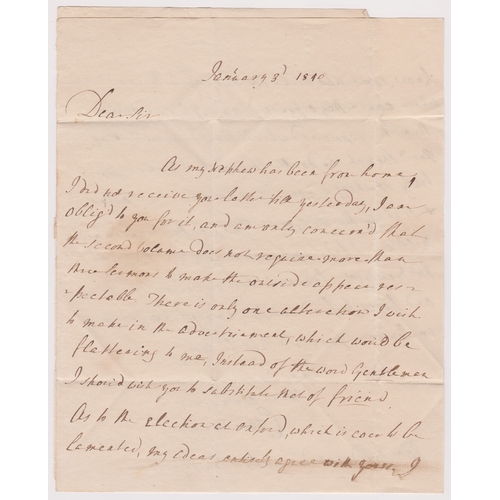 January 3d 1810
Dear Sir
As my Nephew has been from home,
I did not receive your letter till yesterday, I am
oblig'd to you for it, and am only concern'd that
the second volume does not require more than
three Sermons to make the outside appear res-
-pectable. There is only one alteration I wish
to make in the advertisement, which would be
flattering to me, Instead of the word Gentleman
I should wish you to substitute that of friend.
As to the election at Oxford, which is ever to be
lamented, my ideas entirely agree with yours, I